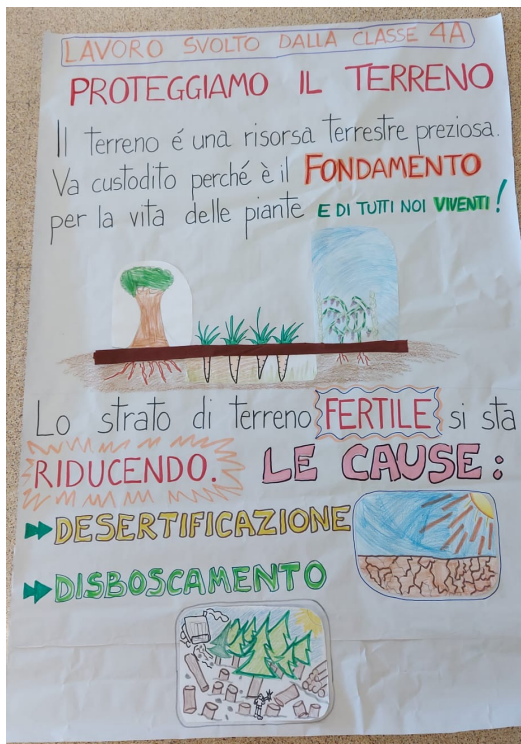 LAVORO SVOLTO DALLA CLASSE 4A
PROTEGGIAMO IL TERRENO
Il terreno é una risorsa terrestre preziosa.
Va custodito perché è il FONDAMENTO
per la vita delle piante E DI TUTTI NOI VIVENTI!
Lo strato di terreno FERTILE si sta
RIDUCENDO. LE CAUSE:
DESERTIFICAZIONE
DISBOSCAMENTO